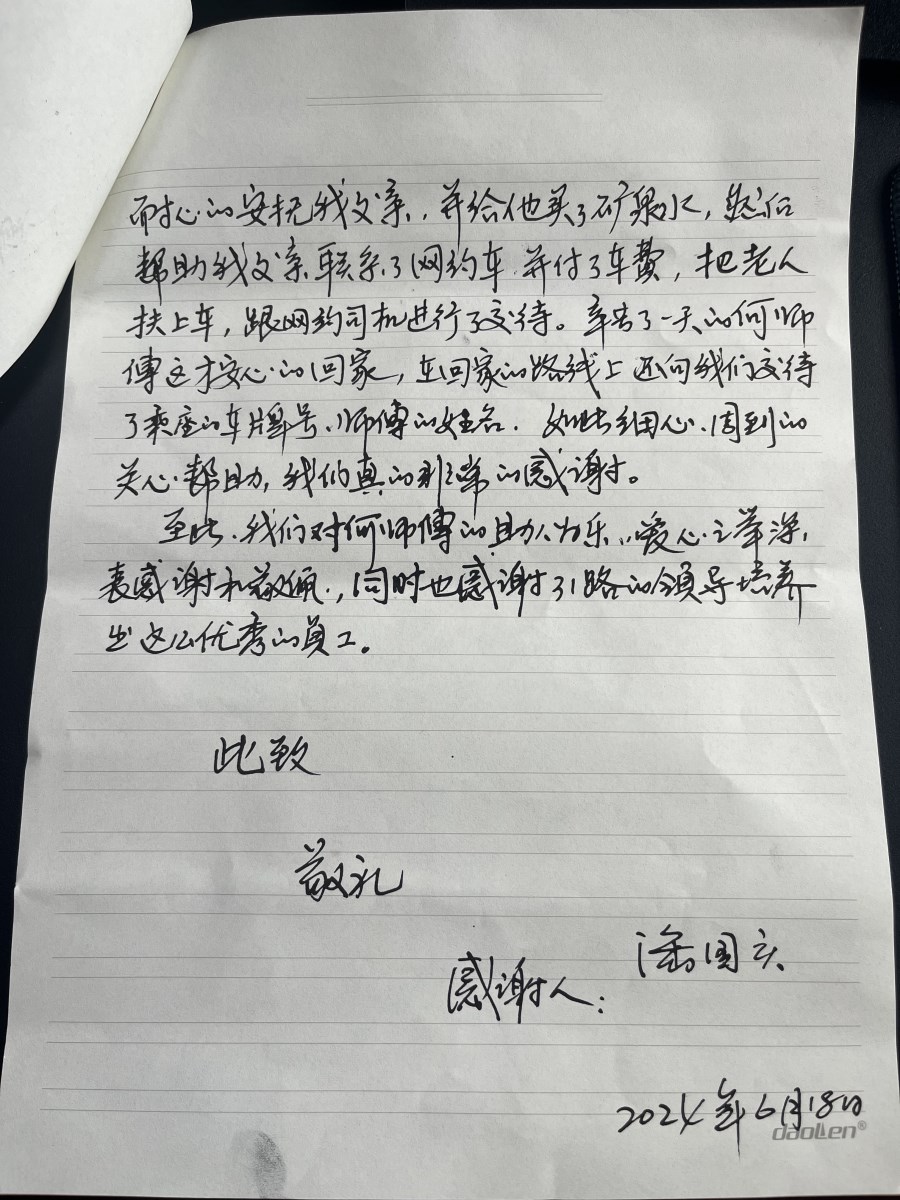 耐心的安抚我父亲，并给他买了矿泉水，然后
帮助我父亲联系了网约车.并付了车费，把老人
扶上车，跟网约司机进行了交待。辛苦了一天的何师
傅这才安心的回家，在回家的路线上还向我们交待
了乘座的车牌号、师傅的姓名.如此细心、周到的
关心.帮助，我们真的非常的感谢。
至此.我们对何师傅的助人为乐、爱心之举深
表感谢和敬佩.，同时也感谢71路的领导培养
出这么优秀的员工。
此致
敬礼
潘国庆
感谢人：
2024年6月18日
daoLen®